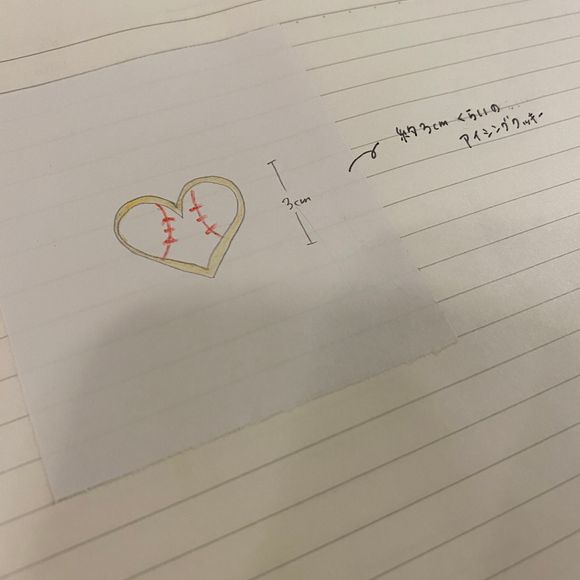 約3cmくらいの
アイシングクッキー
3cm